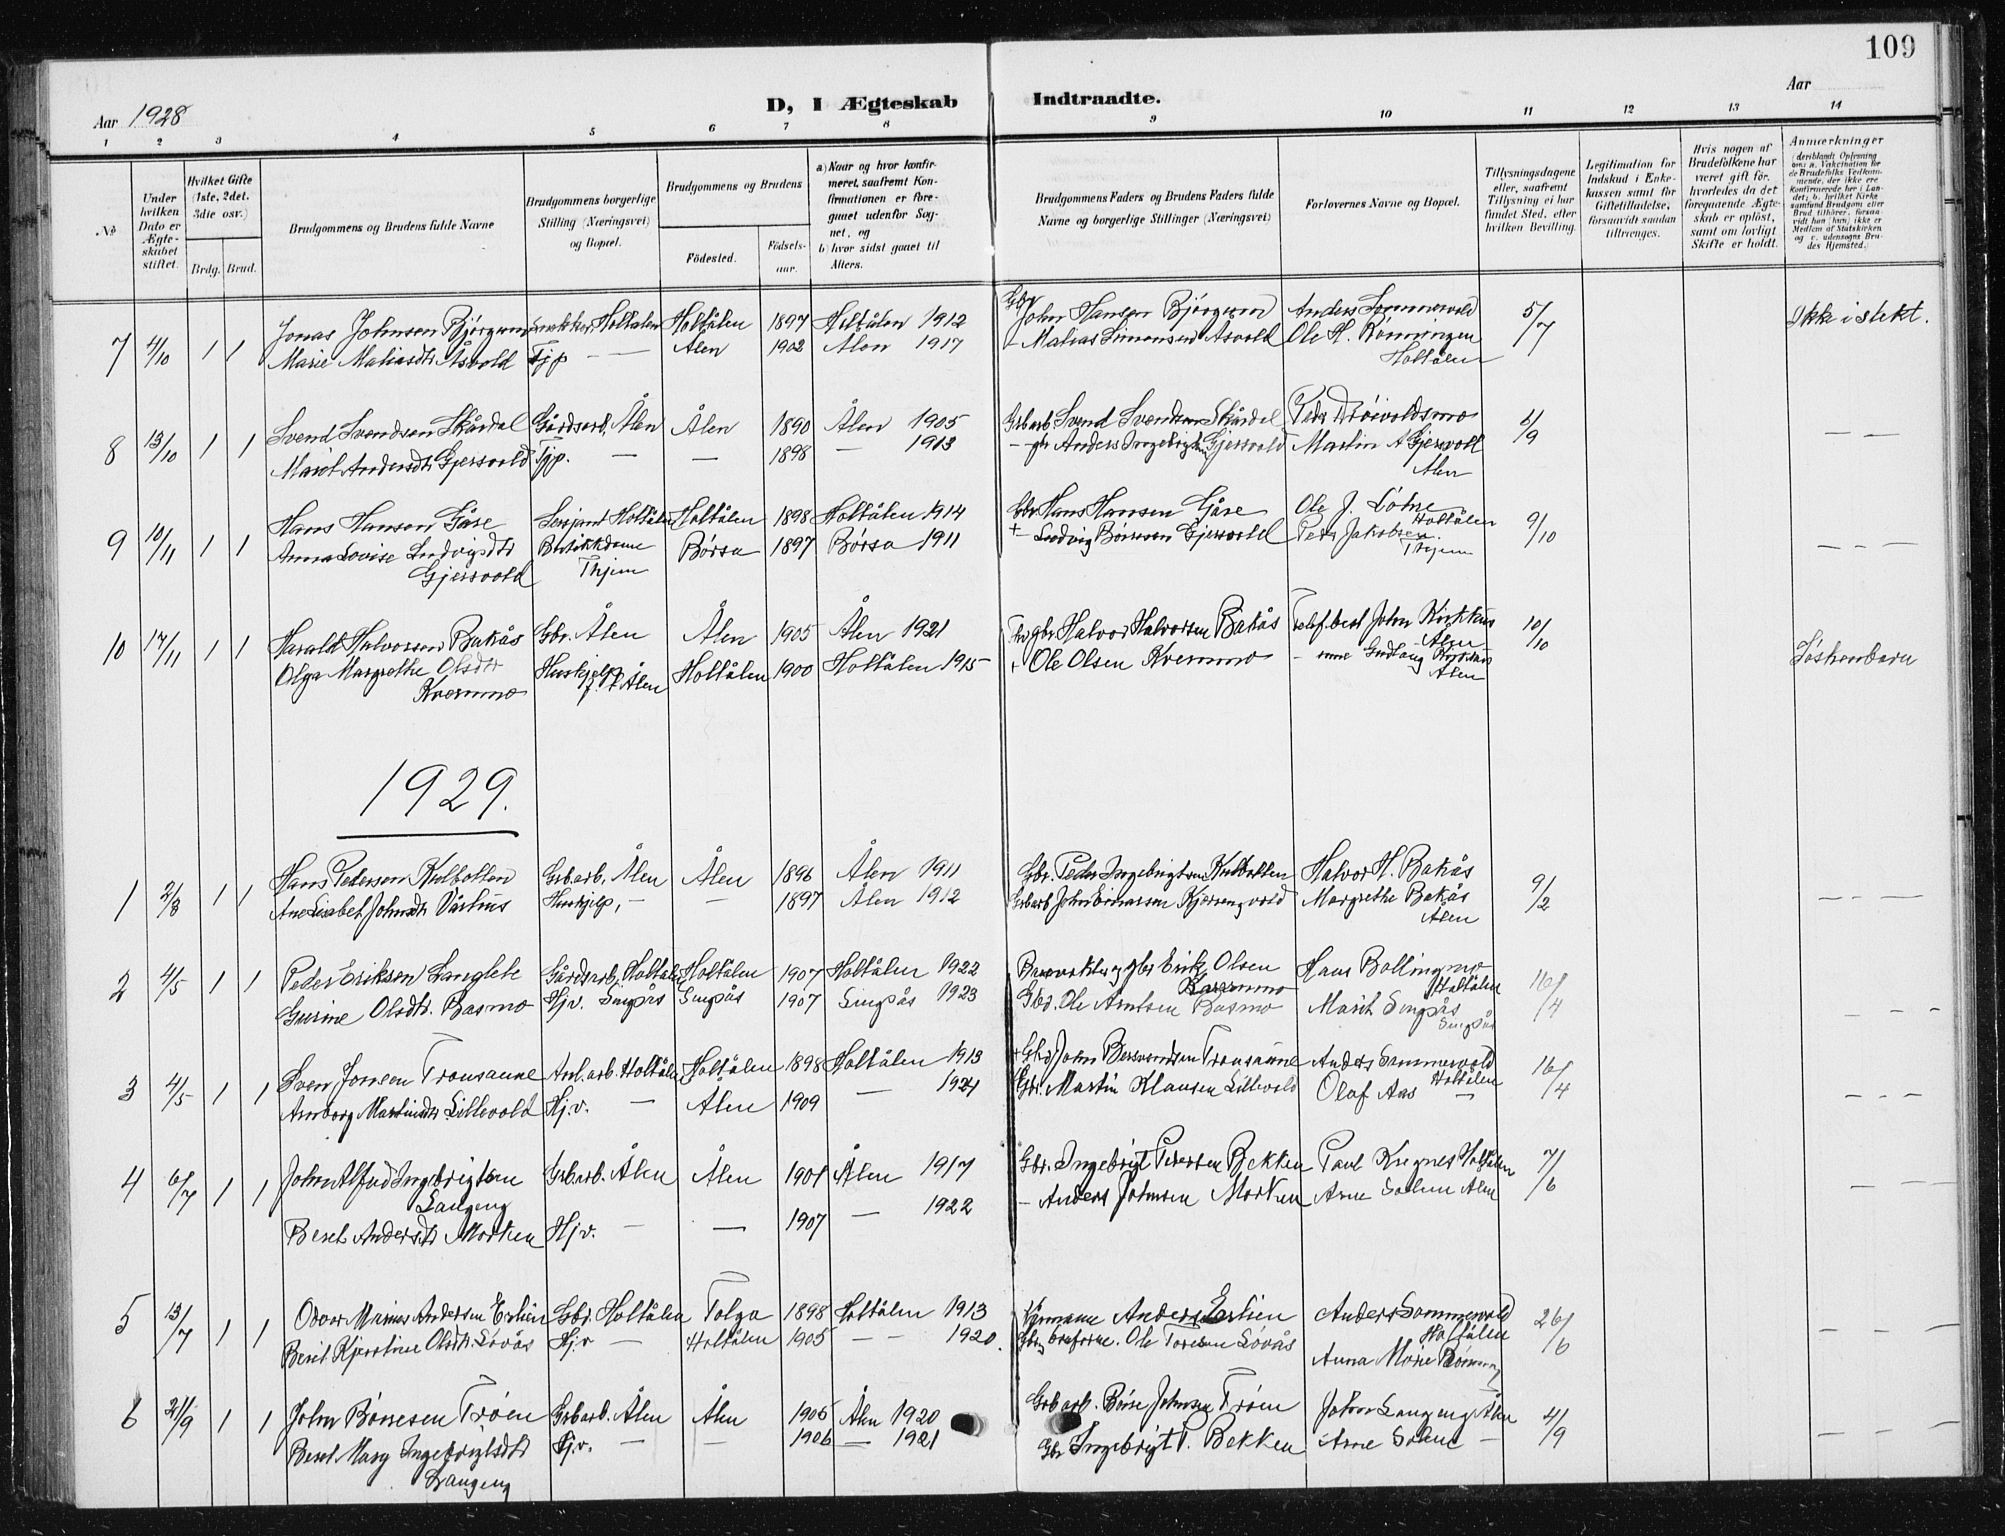 109
D, I Ægteskab Indtraadte.
Aar 1928
Aar
1 2 3 4 5 6 7 8 9 10 11 12 13 14
№
Under hvilken Dato er Ægteskabet stiftet.
Hvilket Gifte (1ste, 2det, 3die osv.)
Brdg. Brud.
Brudgommens og Brudens fulde Navne
Brudgommens borgerlige Stilling (Næringsvei) og Bopæl.
Brudgommens og Brudens
Födested.
Födselsaar.
a) Naar og hvor konfirmeret, saafremt Konfirmationen er foregaaet udenfor Sognet, og
b) hvor sidst gaaet til Alters.
Brudgommens Faders og Brudens Faders fulde Navne og borgerlige Stillinger (Næringsvei)
Forlovernes Navne og Bopæl.
Tillysningsdagene eller, saafremt Tillysning ei har fundet Sted, efter hvilken Bevilling.
Legitimation for Indskud i Enkekassen samt for Giftetilladelse, forsaavidt saadan tiltrænges.
Hvis nogen af Brudefolkene har været gift för, hvorledes da det foregaaende Ægteskab er oplöst, samt om lovligt Skifte er holdt.
Anmærkninger
7 4/10 1 1 Jonas Johnsen Bjørgum Snekker Holtålen Holtålen 1897 Holtålen 1912 Gbr John Hansen Bjørgum Anders Sommervold 5/7 Ikke i slekt.
Marie Matiasdtr Åsvold Tjp — — Ålen 1902 Ålen 1917 - Matias Simonsen Åsvold Ole H. Rønningen
Holtålen
8 13/10 1 1 Svend Svendsen Skårdal Gårdsarb. Ålen Ålen 1890 Ålen 1905 Grbarb Svend Svendsen Skårdal Peder Drøivoldsmo 6/9 — —
Marit Andersdtr Gjersvold Tjp. — — 1898 — 1913 - gbr Anders Ingebrigtsen Gjersvold Martin A Gjersvoll
Ålen
9 10/11 1 1 Hans Hansen Gåre Sersjant Holtålen Holtålen 1898 Holtålen 1914 Gbr Hans Hansen Gåre Ole J. Løhre
Holtålen 9/10 — — —
Anna Lovise Ludvigsdtr Butikkdame Børsa 1897 Børsa 1911 + Ludvig Børresen Gjersvold Peder Jakobsen
Gjersvold Thjem Thjem
10 17/11 1 1 Harald Halvorsen Bakås Gbr. Ålen Ålen 1905 Ålen 1921 gbr Halvor Halvorsen Bakås Telef.best John Kirkhus
Ålen 10/10
Olga Margrethe Olsdtr Huskjelp Holtålen 1900 Holtålen 1915 + Ole Olsen Kvernmo Gudlaug Kirkhus Søskenbarn
Kvernmo Ålen Ålen
1929.
1 2/3 1 1 Hans Pedersen Kulbotten Grb.arb. Ålen Ålen 1896 Ålen 1911 Gbr. Peder Ingebrigtsen Kulbotten Halvor H. Bakås 9/2 — — —
Ane Lisabet Johnsdtr Vårhus Huskjelp, — — 1897 Ålen 1912 Grbarb John Einarsen Kjerrengvold Margrethe Bakås
Ålen
2 4/5 1 1 Peder Eriksen Langlete Gårdsarb, Holtålen Holtålen 1907 Holtålen 1922 gbr Erik Olsen Hans Bollingmo
Holtålen 16/4 — — —
Gurine Olsdtr. Basmo Hjv. Singsås Singsås 1907 Singsås 1923 Gbr. Ole Arntsen Basmo Marit Singsås
Singsås
3 4/5 1 1 Sven Jonsen Trousaune Anl.arb. Holtålen Holtålen 1898 Holtålen 1913 + Gbr John Bersvendsen Trousaune Anders Sommervold
Holtålen 16/4 — — —
Arnborg Martinsdtr Lillevold Hjv. — Ålen 1909 — 1924 Gbr. Martin Klausen Lillevold Olaf Aas —
4 6/7 1 1 John Alfred Ingebrigtsen Grb.arb. Ålen Ålen 1901 Ålen 1917 Gbr. Ingebrigt Petersen Bekken Paul Kregnes Holtålen 7/6 — —
Langeng
Beret Andersdtr Morken Hjv. — — 1907 — 1922 - Anders Johnsen Morken Arne Ålen
5 13/7 1 1 Odvar Marius Andersen Erlien Gbr. Holtålen Tolga 1898 Holtålen 1913 Anders Erlien Anders Sommervold
Holtålen 26/6 — — —
Berit Kjerstine Olsdtr. Løvås Hjv — Holtålen 1905 — — 1920. Ole Toresen Løvås Anna Marie
6 21/9 1 1 John Børresen Trøen Grb.arb. Ålen Ålen 1905 Ålen 1920 Grb arb. Børse Johnsen Trøen John Langeng Ålen 4/9 — —
Beret Mary Ingebrigtsdtr Hjv. — — 1906 — 1921 Gbr Ingebrigt P. Bekken Arne —
Langeng